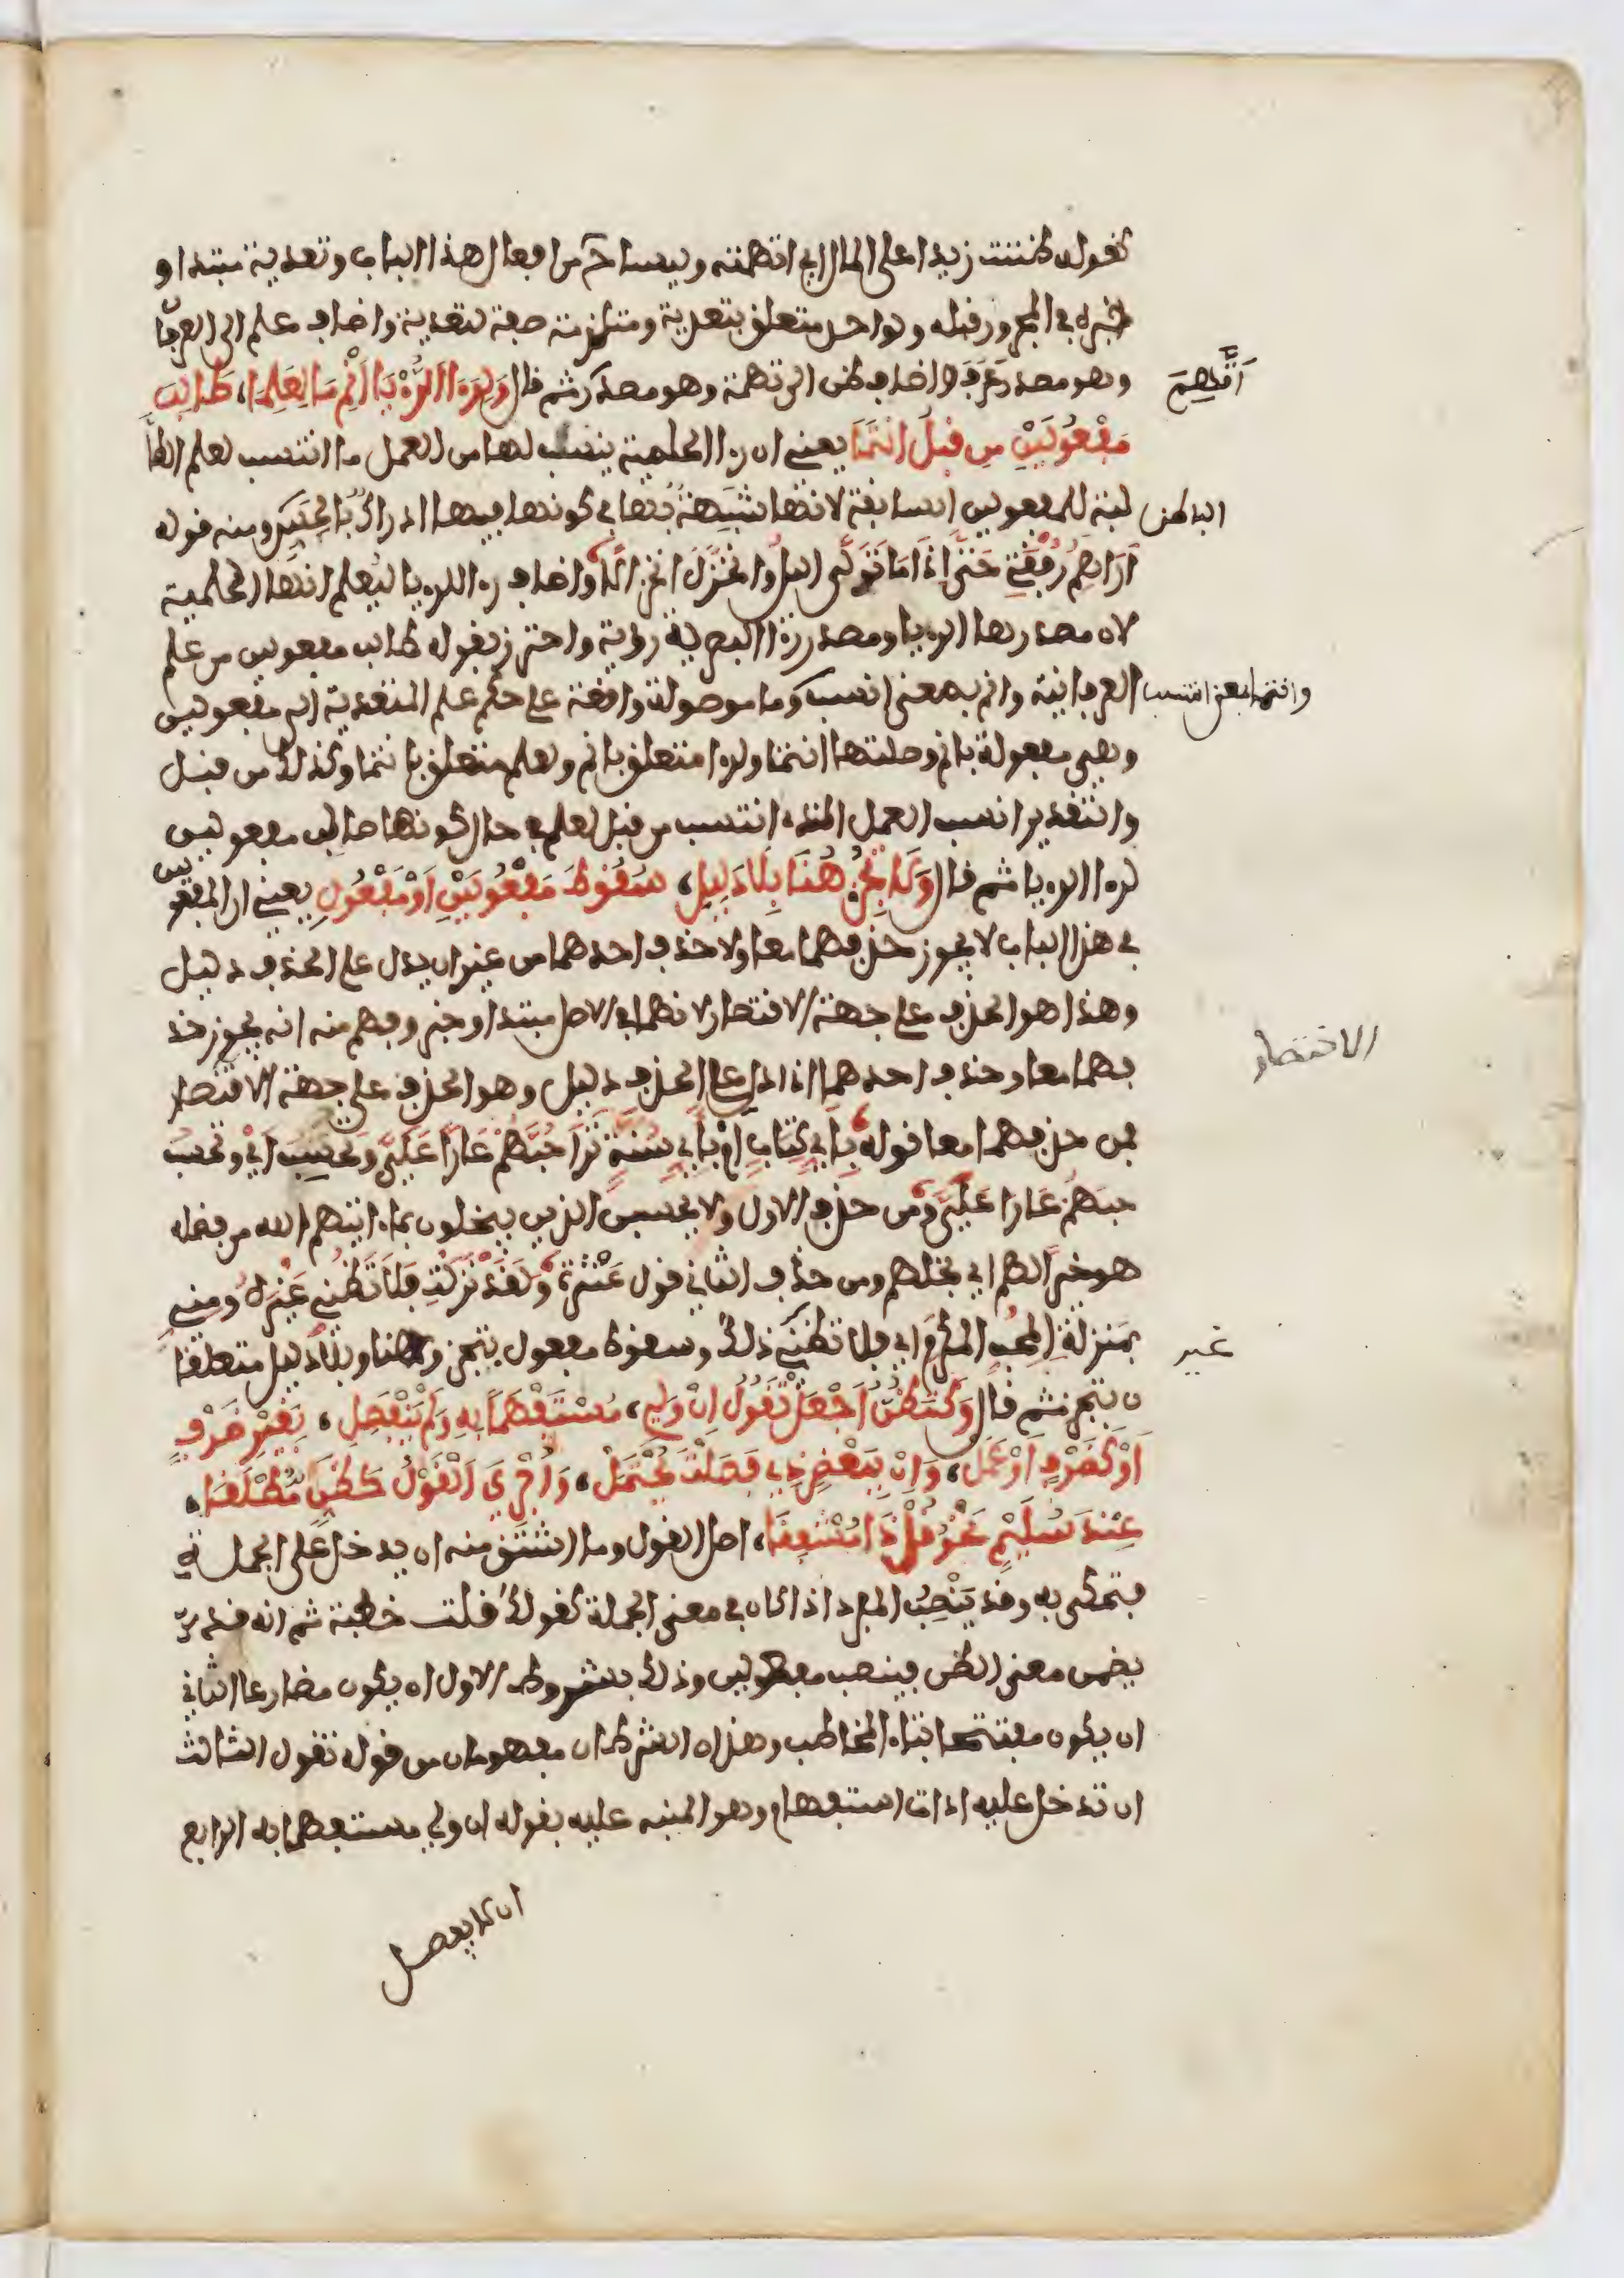 تقول ظننت زيدا على المال اي اتهمته وليستا من افعال هذا الباب وتعدية مبتدا و
خبره في المجرور قبله ولواحد متعلق بتعدية وملتزمة صفة لتعدية واضاف علم الى العرفا
ن وهو مصدر عرف واضاف ظن الى تهمة وهو مصدر ثم قال ولرءا الرؤيا انم ما لعلما، طالب
مفعولين من قبل انتما يعني ان رءا الحلمية ينسب لها من العمل ما انتسب لعلم الطا
لبة للمفعولين السابقة لانها شبيهة بها في كونها فيها ادراك بالحس ومنه قوله
اراهم رفقتي حتى اذا ما تولى الليل وانخزل انخزالا واضاف رءا للرؤيا ليعلم انها الحلمية
لان مصدرها الرؤيا ومصدر رءا البصرية رؤية واحترز بقوله طالب مفعولين من علم
العرفانية وانم بمعنى انسب وما موصولة واقعة على حكم علم المتعدية الى مفعولين
وهي مفعولة بانم وصلتها انتما ولرءا متعلق بانم ولعلم متعلق بانتما وكذلك من قبل
والتقدير انسب العمل الذي انتسب من قبل لعلم في حال كونها طالب مفعولين
لرءا الرؤيا ثم قال ولا تجز هنا بلا دليل، سقوط مفعولين او مفعول يعني ان المفعولين
في هذا الباب لا يجوز حذفهما معا ولا حذف احدهما من غير ان يدل على الحذف دليل
وهذا هو الحذف على جهة الاقتصار لانهما في الاصل مبتدا وخبر وفهم منه انه يجوز حذ
فهما معا وحذف احدهما اذا دل على الحذف دليل وهو الحذف على جهة الاختصار
فمن حذفهما معا قوله باي كتاب ام باي سنة ترا حبهم عارا علي وتحسب اي وتحسب
حبهم عارا علي ومن حذف الاول ولا يحسبن الذين يبخلون بما ءاتيهم الله من فضله
هو خيرا لهم اي بخلهم ومن حذف الثاني قول عنترة ولقد نزلت فلا تظني غيره مني
بمنزلة المحب المكرم اي فلا تظني ذلك وسقوط مفعول بتجز وهنا وبلا دليل متعلقا
ن بتجز ثم قال وكتظن اجعل تقول ان ولي، مستفهما به ولم ينفصل، بغير ظرف
او كظرف او عمل، وان ببعض ذي فصلت يحتمل، واجري القول كظن مطلقا،
عند سليم نحو قل ذا مشفقا، اصل القول وما اشتق منه ان يدخل على الجملة
فتحكى به وقد ينصب المفرد اذا كان في معنى الجملة كقولك قلت خطبة ثم انه قد
يضمن معنى الظن فينصب مفعولين وذلك بشروط الاول ان يكون مضارعا الثاني
ان يكون مفتتحا بتاء المخاطب وهذان الشرطان مفهومان من قوله تقول الثالث
ان تدخل عليه اداة استفهام وهو المنبه عليه بقوله ان ولي مستفهما به الرابع
ان لا يفصل
اتهم
الباطن
وانتما بمعنى انتسب
الاختصار
غير